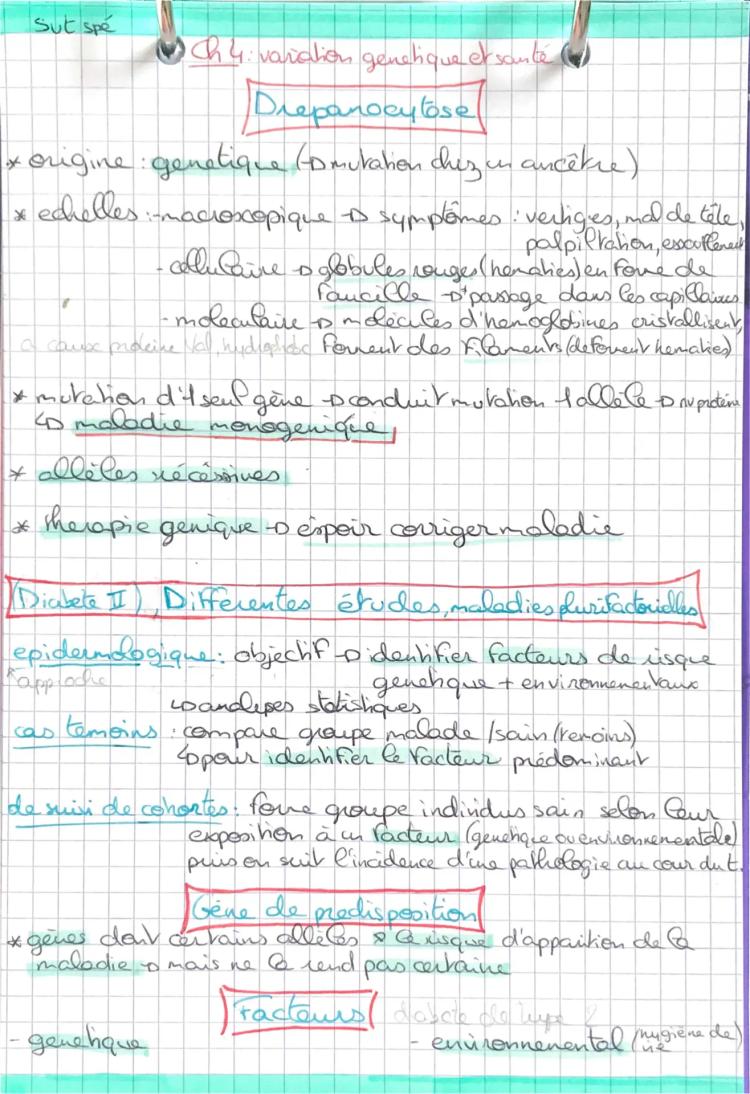 SVT spé
Ch 4: variation genetique et santé
Drepanocytose
* origine : genetique (→ mutation chez un ancêtre)
* echelles : - macroscopique → symptômes : vertiges, mal de tête,
palpiltration, essoufflement
- cellulaire → globules rouges (hematies) en forme de
faucille → passage dans les capillaires
- moleculaire → molécules d'hemoglobines cristallisent,
a cause proteine Val, hydrophobe forment des filaments (deforment hematies)
* mutation d'1 seul gène → conduit mutation 1 allèle → nv protéine
↳ maladie monogenique
* allèles récéssives
* therapie genique → espoir corriger maladie
(Diabete II), Differentes études, maladies plurifactorielles
epidermologique : objectif → identifier facteurs de risque
approche genetique + environnementaux
↳ analyses statistiques
cas temoins : compare groupe malade / sain (temoins)
↳ pour identifier le facteur prédominant
de suivi de cohortes : forme groupe individus sain selon leur
exposition à un facteur (genetique ou environnementale)
puis on suit l'incidence d'une pathologie au cour du t.
Gène de predisposition
* gènes dont certains allèles ↗ le risque d'apparition de la
maladie → mais ne la rend pas certaine
Facteurs diabete de type 2
- genetique - environnemental (hygiène de vie)